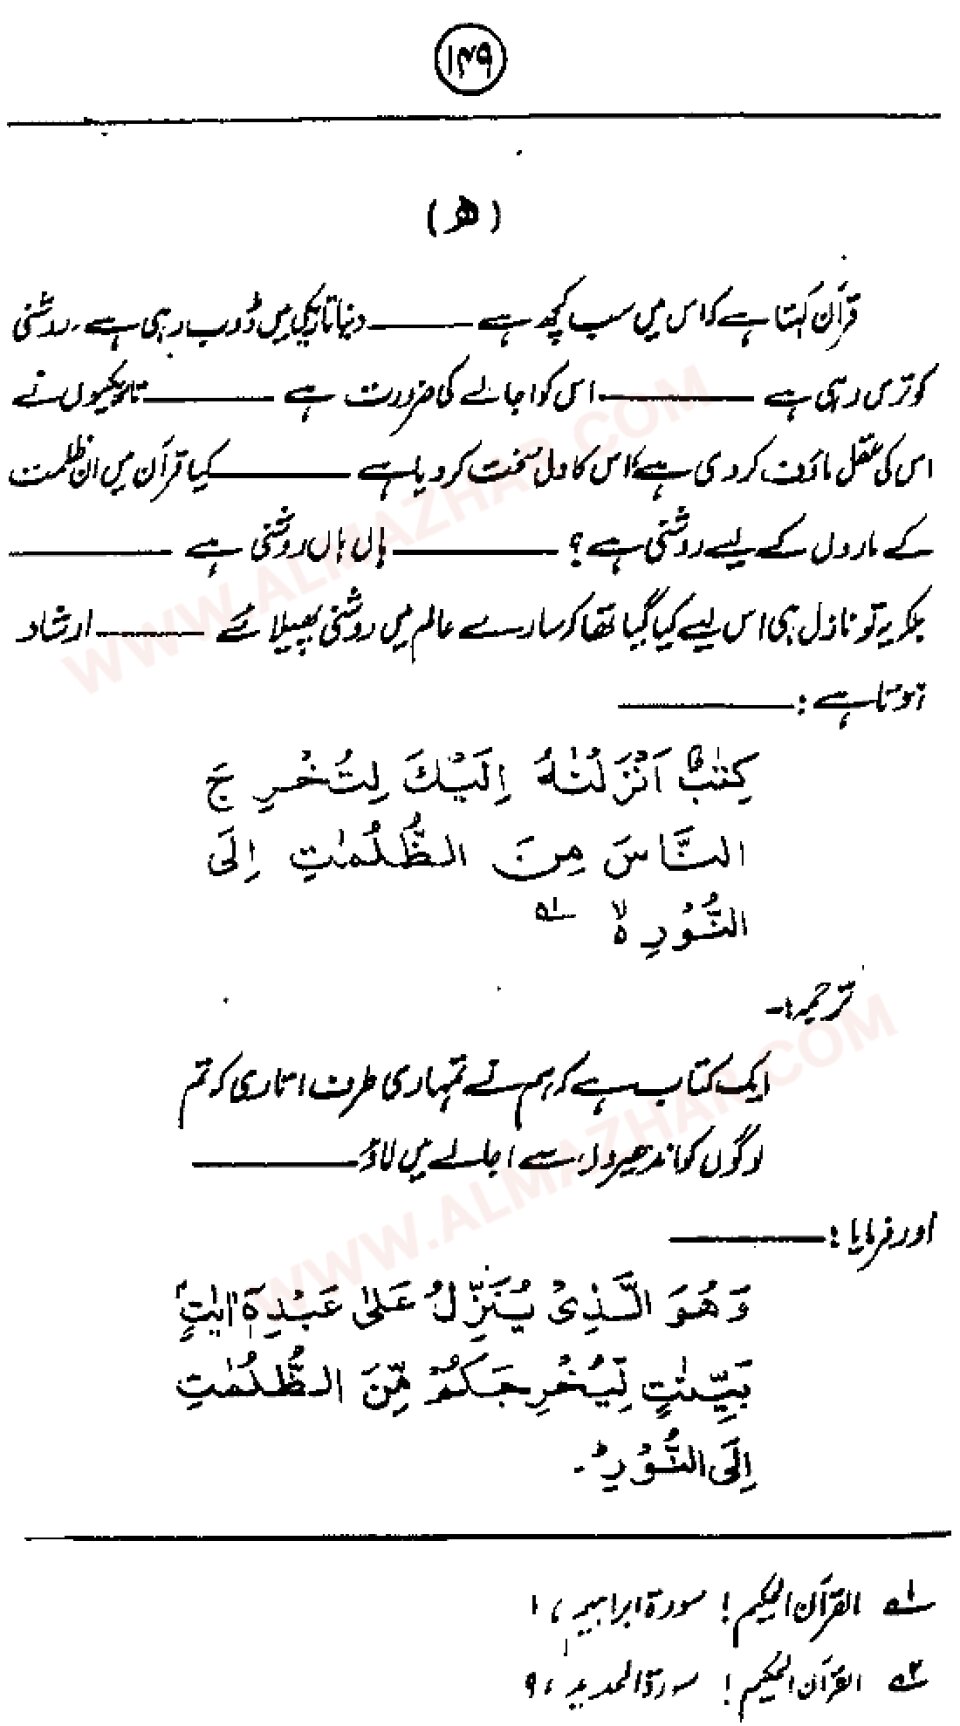 ۱۴۹
(ھ)
قرآن کہتا ہے کہ اس میں سب کچھ ہے ——— دنیا تاریکی میں ڈوب رہی ہے، روشنی
کو ترس رہی ہے ——— اس کو اجالے کی ضرورت ہے ——— تاریکیوں نے
اس کی عقل ماؤف کر دی ہے کہ اس کا دل سخت کر دیا ہے ——— کیا قرآن میں ان ظلمت
کے ماروں کے لیے روشنی ہے؟ ——— ہاں ہاں روشنی ہے ———
بلکہ یہ تو نازل ہی اس لیے کیا گیا تھا کہ سارے عالم میں روشنی پھیلائے ——— ارشاد
ہوتا ہے: ———
كِتٰبٌ اَنْزَلْنٰهُ اِلَيْكَ لِتُخْرِجَ
النَّاسَ مِنَ الظُّلُمٰتِ اِلَى
النُّوْرِ ۵ لا ۱؎
ترجمہ:۔
ایک کتاب ہے کہ ہم نے تمہاری طرف اتاری کہ تم
لوگوں کو اندھیروں سے اجالے میں لاؤ ———
اور فرمایا: ———
وَهُوَ الَّذِيْ يُنَزِّلُ عَلٰى عَبْدِهٖٓ اٰيٰتٍۭ
بَيِّنٰتٍ لِّيُخْرِجَكُمْ مِّنَ الظُّلُمٰتِ
اِلَى النُّوْرِ ؕ۔
۱؎ القرآن الحکیم! سورۃ ابراہیم، ۱
۲؎ القرآن الحکیم! سورۃ الحدید، ۹
WWW.ALMAZHAR.COM
WWW.ALMAZHAR.COM